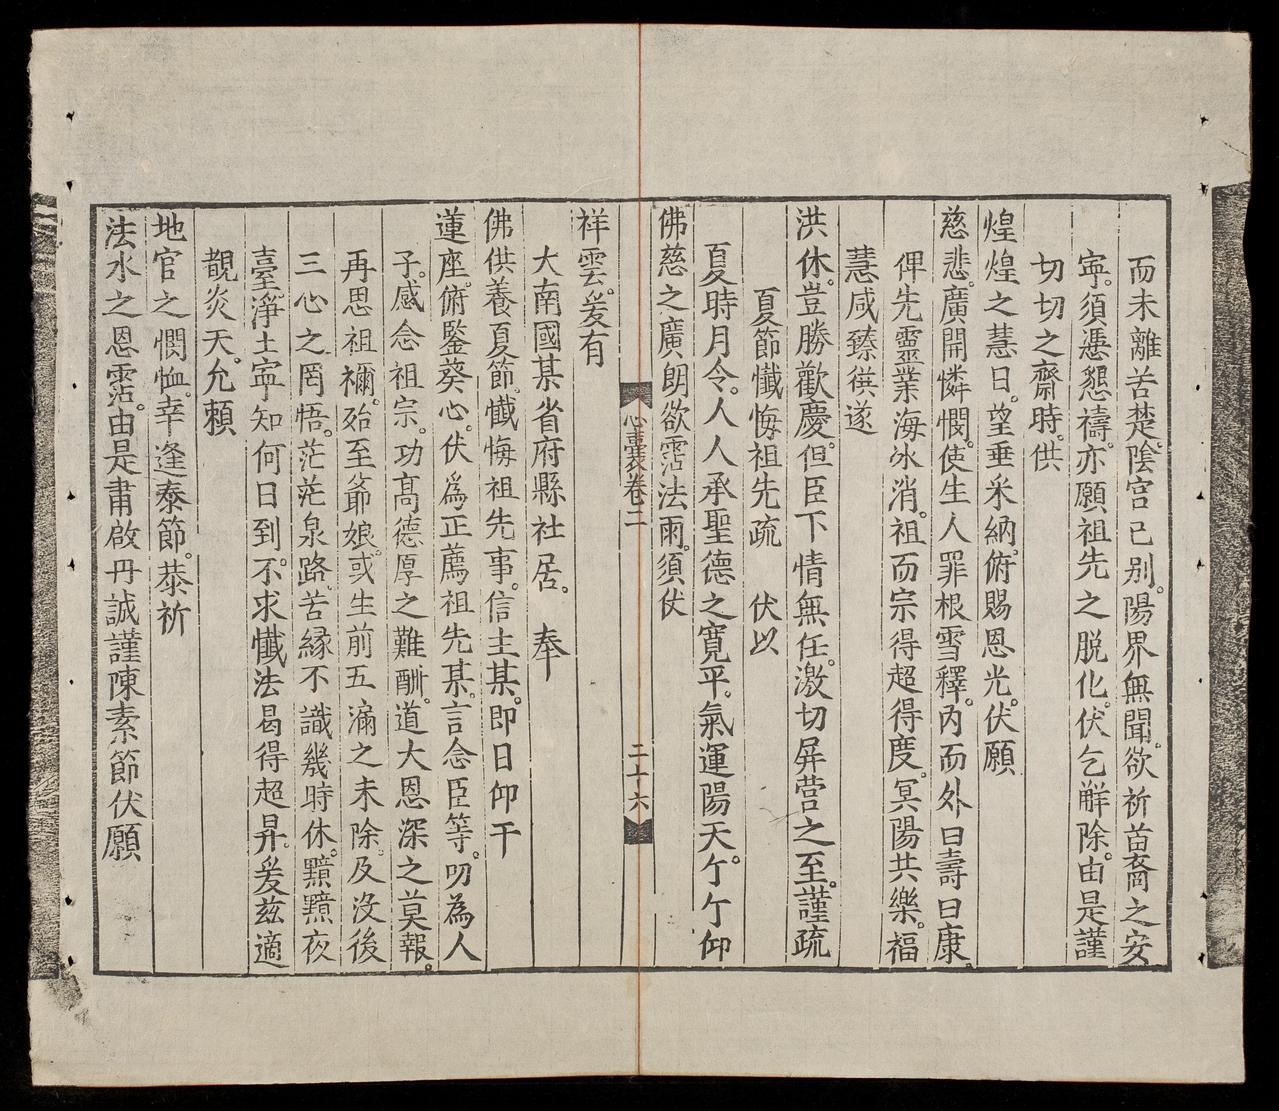 而未離苦楚陰宮已别。陽界無聞。欲祈苗裔之安
寕。須慿懇禱。亦願祖先之脱化。伏乞觧除。由是謹
切切之齋時。供
煌煌之慧日。望垂采納。俯賜恩光。伏願
慈悲。廣開憐憫。使生人罪根雪釋。内而外曰壽曰康。
俾先靈業海冰消。祖而宗得超得度。冥陽共樂。福
慧咸臻。供遂
洪休。豈勝歡慶。但臣下情無任。激切屏营之至。謹疏
夏節懺悔祖先疏 伏以
夏時月令。人人承聖德之寛平。氣運陽天。个个仰
佛慈之廣朗。欲霑法雨。須仗
心囊卷二 二十六
祥雲。爰有
大南國某省府縣社居。 奉
佛供養夏節。懺悔祖先事。信主某。即日仰干
蓮座。俯鑒葵心。伏爲正薦祖先某。言念臣等。叨為人
子。感念祖宗。功髙德厚之難酬。道大恩深之莫報。
再思祖禰。殆至爺娘。或生前五漏之未除。及没後
三心之罔悟。茫茫泉路。苦縁不識幾時休。黯黯夜
臺。淨土寕知何日到。不求懺法曷得超昇。爰兹適
覩炎天。允賴
地官之憫恤。幸逢泰節。恭祈
法水之恩霑。由是肅啟丹誠謹陳素節伏願